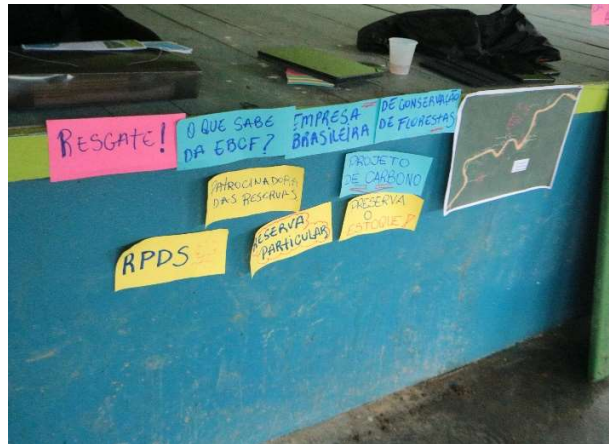 RESGATE!
O QUE SABE
DA EBCF?
EMPRESA
BRASILEIRA
DE CONSERVAÇÃO
DE FLORESTAS
PATROCINADORA
DAS RESERVAS
PROJETO
DE CARBONO
RPDS
RESERVA
PARTICULAR
PRESERVA
O
ESTOQUE